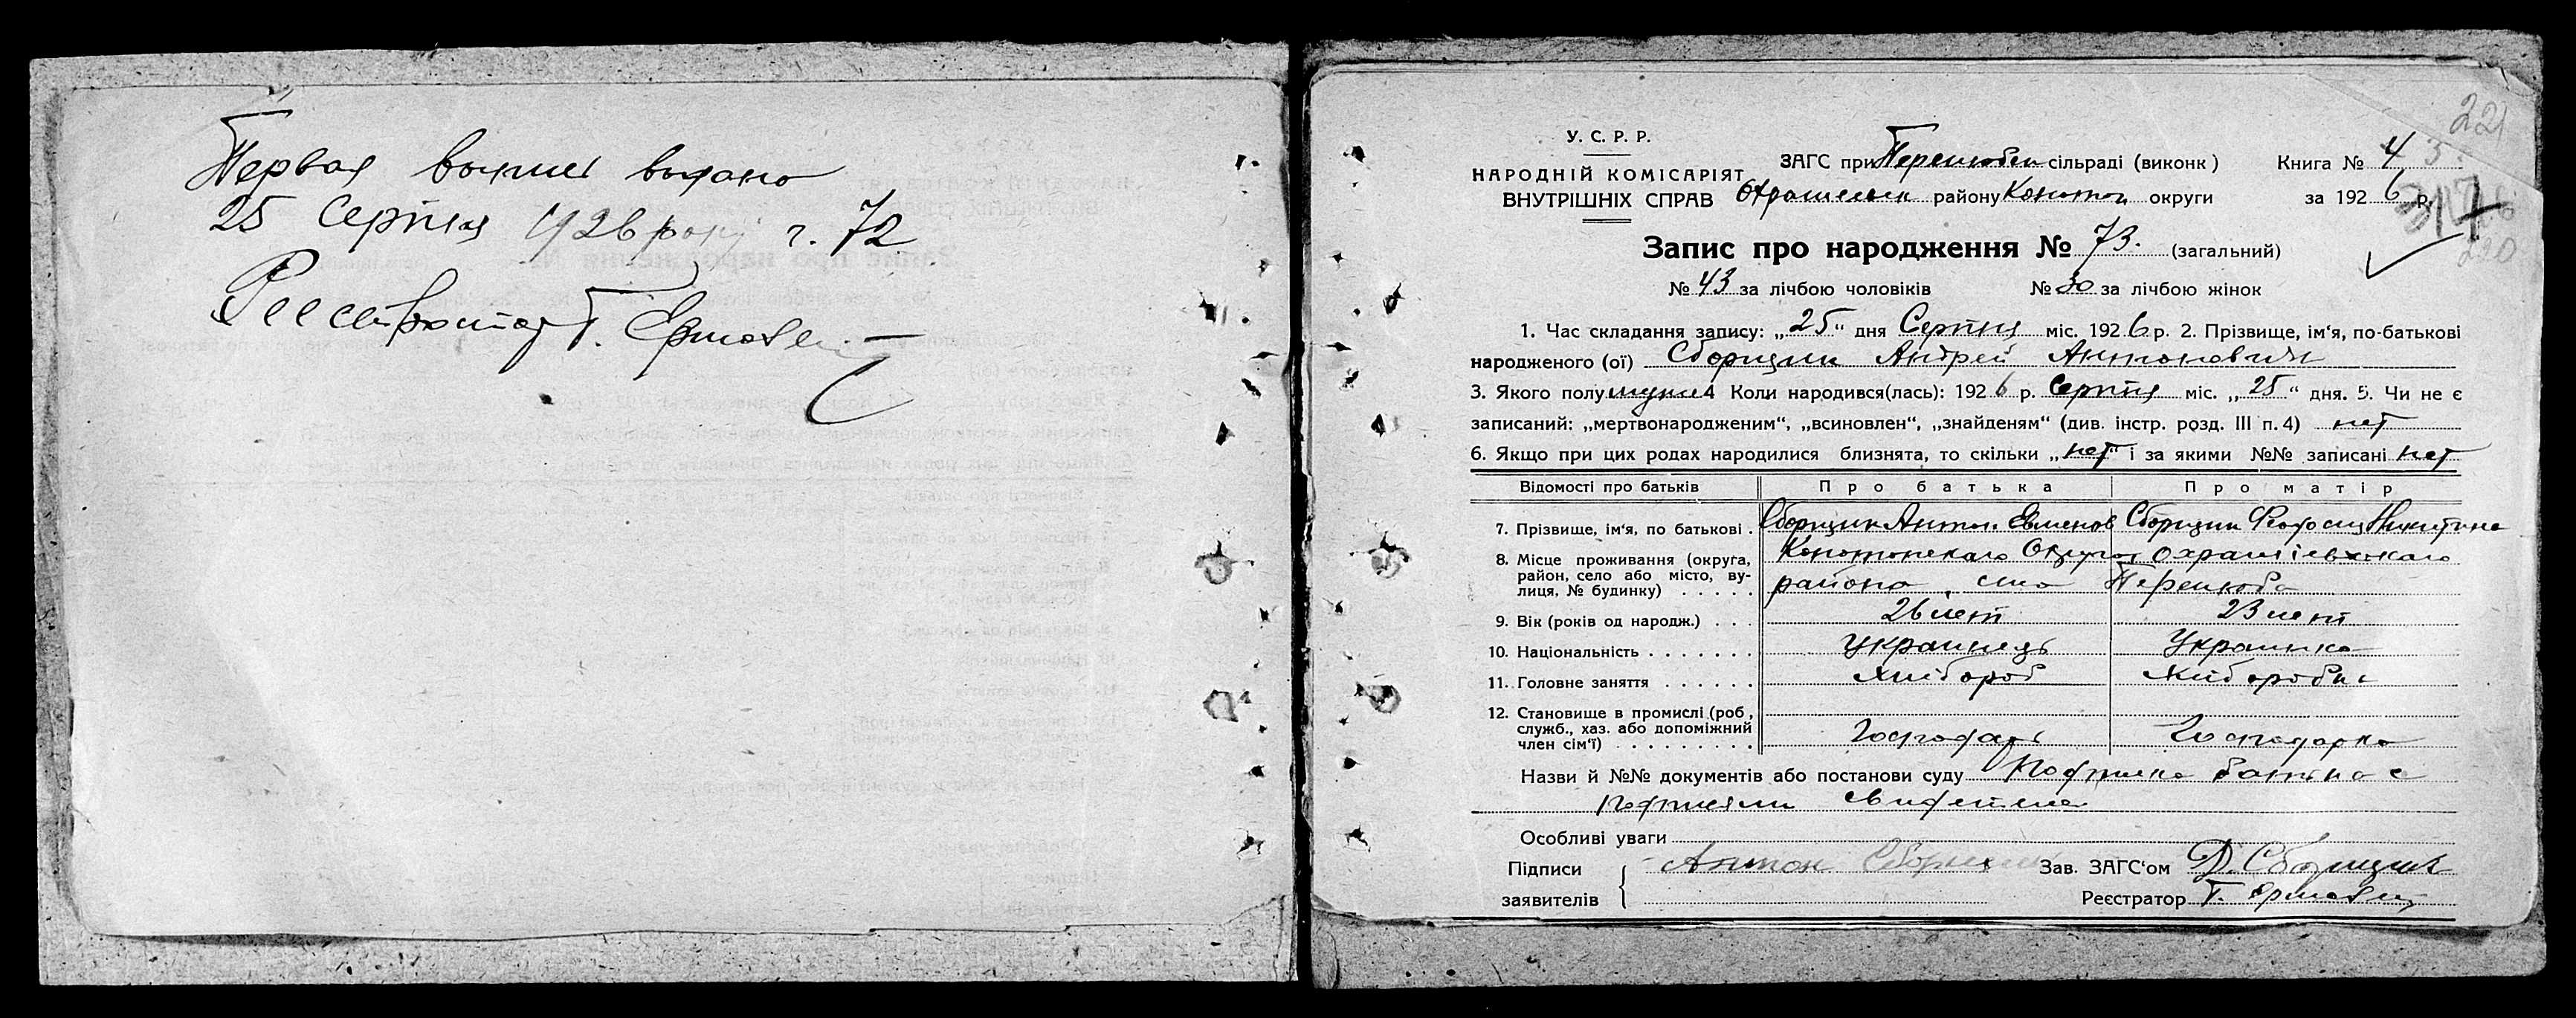 Первая выпись выдано
25 Серпня 1926 року ч. 72
Реестратор Г. Ермов
У. С. Р. Р.
НАРОДНІЙ КОМІСАРІЯТ
ВНУТРІШНІХ СПРАВ
ЗАГС при Перекобск сільраді (виконк)
районуКонотоп округи
Книга № 4
за 1926 р.
221
317
220
Запис про народження № 73. (загальний)
№ 43 за лічбою чоловіків № 30 за лічбою жінок
1. Час складання запису: „25“ дня Серпня міс. 1926 р. 2. Прізвище, ім‘я, по-батькові
народженого (ої) Сборщик Андрей Антонович
3. Якого полу мужск 4 Коли народився(лась): 1926 р. Серпня міс. „25“ дня. 5. Чи не є
записаний: „мертвонародженим“, „всиновлен“, „знайденям“ (див. інстр. розд. III п. 4) нет
6. Якщо при цих родах народилися близнята, то скільки „нет“ і за якими №№ записані нет
Відомості про батьків Про батька Про матір
7. Прізвище, ім‘я, по батькові . Сборщик Антон Евменов Сборщик Феодосия Никитина
8. Місце проживання (округа, район, село або місто, вулиця, № будинку) . . . . . Конотопскаго Округа
района село
9. Вік (років од народж.) . . . 26 лет 23 лет
10. Національність . . . . . . . Украинець Украинка
11. Головне заняття . . . . . . Хлібороб Хліборобка
12. Становище в промислі (роб,
служб., хаз. або допоміжний
член сім‘ї) . . . . . . . . . Господарь Господарка
Назви й №№ документів або постанови суду Подписка батька с
подписями свидетелей
Особливі уваги
Підписи
заявителів
Антон Сборщик
Зав. ЗАГС‘ом Д. Сборщик
Реєстратор Г. Ермов